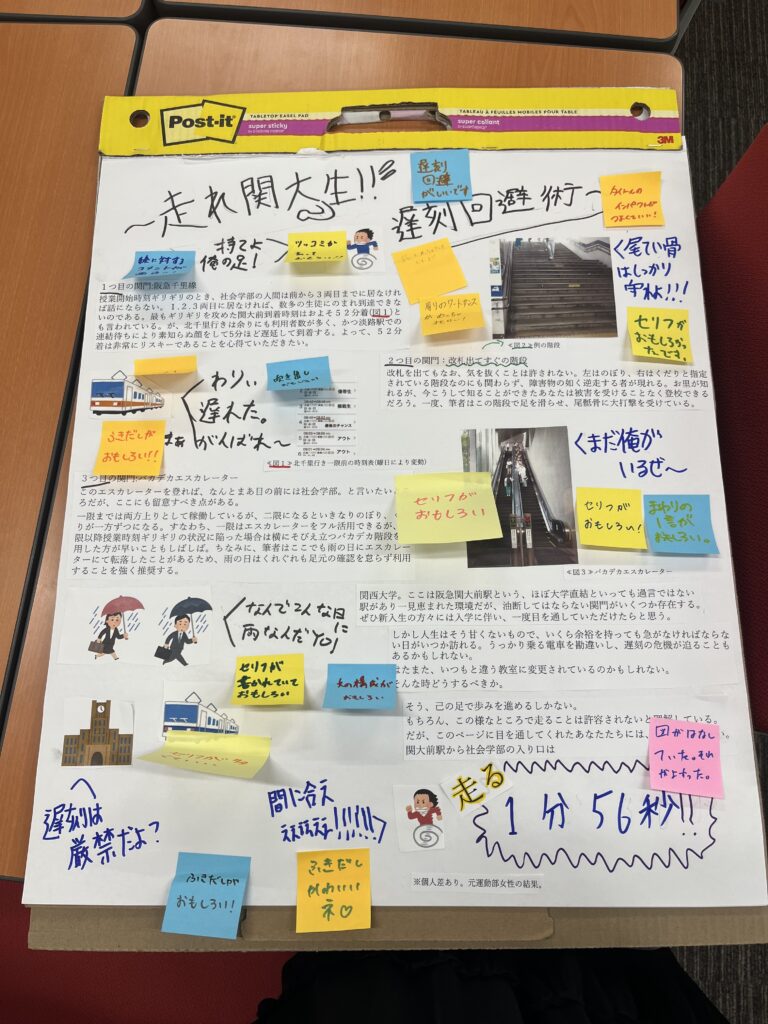 Post-it
super sticky
TABLETOP EASEL PAD
TABLEAU À FEUILLES MOBILES POUR TABLE
super collant
3M
～走れ関大生!!
遅刻回避術～
遅刻
回避
タイトルの
インパクトが
持てよ
俺の足!
ツッコミが
1つ目の関門:阪急千里線
授業開始時刻ギリギリのとき、社会学部の人間は前から3両目までに居なけれ
ば話にならない。1.2.3両目に居なければ、数多の生徒にのまれ到達できな
いのである。最もギリギリを攻めた関大前到着時刻はおよそ52分着(図1)と
も言われている。が、北千里行きは余りにも利用者数が多く、かつ淡路駅での
連結待ちにより素知らぬ顔をして5分ほど遅延して到着する。よって、52分
着は非常にリスキーであることを心得ていただきたい。
≪図2≫例の階段
く尾てい骨
はしっかり
守れ!!!
セリフが
おもしろかっ
たです。
2つ目の関門:改札出てすぐの階段
改札を出てもなお、気を抜くことは許されない。左はのぼり、右はくだりと指定
されている階段なのにも関わらず、障害物の如く逆走する者が現れる。お里が知
れるが、今こうして知ることができたあなたは被害を受けることなく登校できる
だろう。一度、筆者はこの階段で足を滑らせ、尾骶骨に大打撃を受けている。
わりぃ
遅れた。
まぁがんばれ～
ふきだしが
おもしろい!!
優等生
最後のチャンス
アウト
アウト
≪図1≫北千里行き一限前の時刻表(曜日により変動)
くまだ俺が
いるぜ～
セリフが
おもしろい
セリフが
おもしろい!
まわりの
1言が
おもしろい。
≪図3≫バカデカエスカレーター
3つ目の関門:バカデカエスカレーター
このエスカレーターを登れば、なんとまあ目の前には社会学部。と言いたい
ろだが、ここにも留意すべき点がある。
一限までは両方上りとして稼働しているが、二限になるといきなりのぼり、
りが一方ずつになる。すなわち、一限はエスカレーターをフル活用できるが、
限以降授業時刻ギリギリの状況に陥った場合は横にそびえ立つバカデカ階段を
用した方が早いこともしばしば。ちなみに、筆者はここでも雨の日にエスカレー
ターにて転落したことがあるため、雨の日はくれぐれも足元の確認を怠らず利用
することを強く推奨する。
関西大学。ここは阪急関大前駅という、ほぼ大学直結といっても過言ではない
駅があり一見恵まれた環境だが、油断してはならない関門がいくつか存在する。
ぜひ新入生の方々には入学に伴い、一度目を通していただけたらと思う。
なんでこんな日に
雨なんだYO
しかし人生はそう甘くないもので、いくら余裕を持っても急がなければならな
い日がいつか訪れる。うっかり乗る電車を勘違いし、遅刻の危機が迫ることも
あるかもしれない。
はたまた、いつもと違う教室に変更されているのかもしれない。
そんな時どうするべきか。
セリフが
書かれていて
おもしろい
おもしろい
そう、己の足で歩みを進めるしかない。
もちろん、この様なところで走ることは許容されないと理解している。
だが、このページに目を通してくれたあなたたちには、
関大前駅から社会学部の入り口は
図がはなし
ていた。それ
がよかった。
遅刻は
厳禁だよ?
間に合え
走る
1分56秒!!
※個人差あり。元運動部女性の結果。
ふきだしが
おもしろい!
ふきだし
かわいい
ネ♡